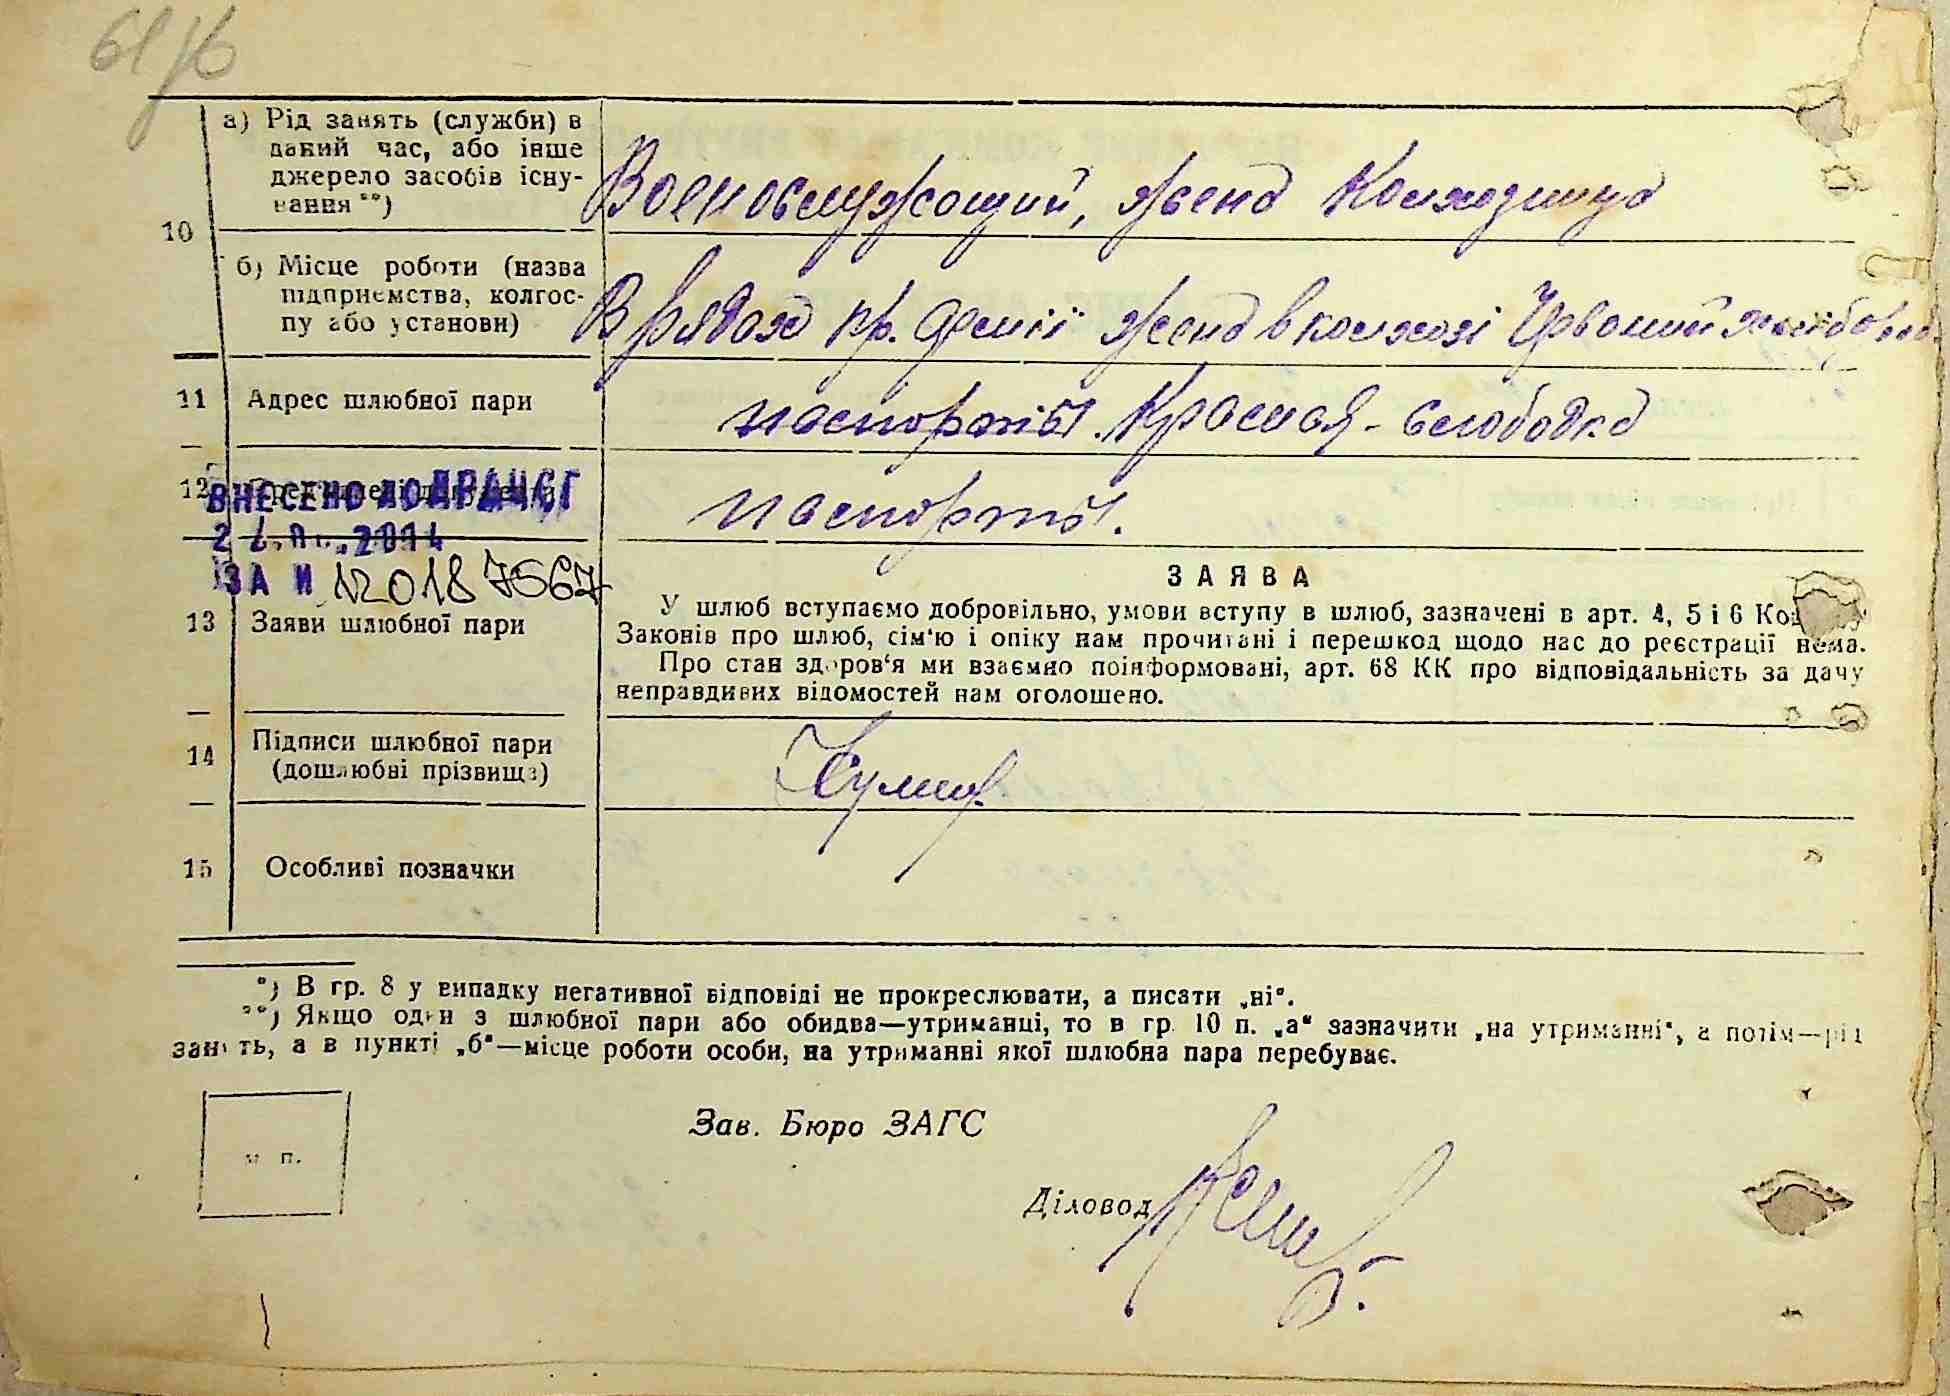 а) Рід занять (служби) в
даний час, або інше
джерело засобів існу-
вання **)
Военослужощий, жена Колхозница
10
б) Місце роботи (назва
підприємства, колгос-
пу або установи)
В рядах кр. Армії жена в колхозі Червоний
11 Адрес шлюбної пари
паспорты. Красная-слободка
12
ВНЕСЕНО ДО ДРАЦСГ
паспорты.
ЗА № 120187567
ЗАЯВА
13 Заяви шлюбної пари
У шлюб вступаємо добровільно, умови вступу в шлюб, зазначені в арт. 4, 5 і 6
Законів про шлюб, сім'ю і опіку нам прочитані і перешкод щодо нас до реєстрації нема.
Про стан здоров'я ми взаємно поінформовані, арт. 68 КК про відповідальність за дачу
неправдивих відомостей нам оголошено.
14 Підписи шлюбної пари
(дошлюбні прізвища)
15 Особливі позначки
*) В гр. 8 у випадку негативної відповіді не прокреслювати, а писати „ні“.
**) Якщо один з шлюбної пари або обидва—утриманці, то в гр. 10 п. „а“ зазначити „на утриманні“, а потім—рід
занять, а в пункті „б“—місце роботи особи, на утриманні якої шлюбна пара перебуває.
м п.
Зав. Бюро ЗАГС
Діловод